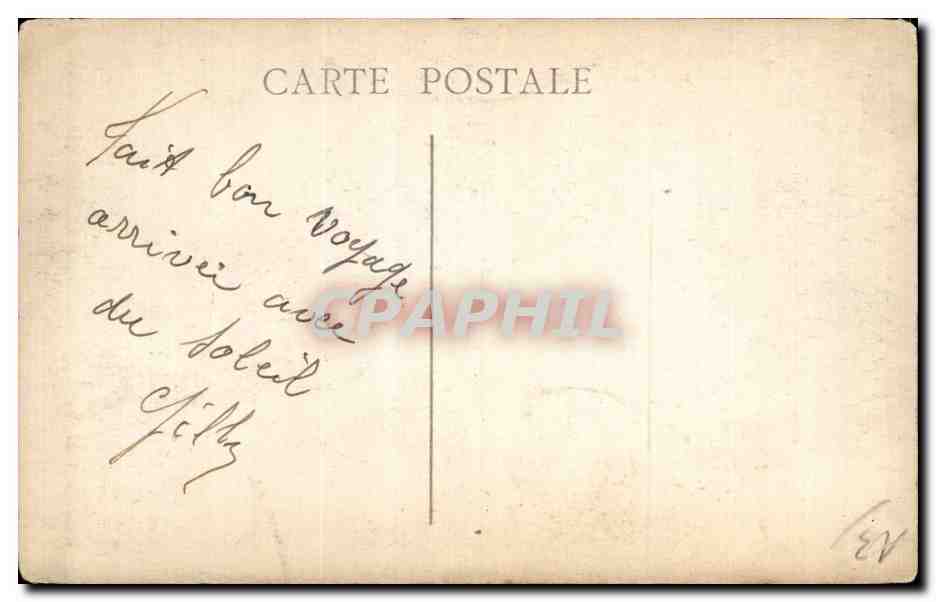 CARTE POSTALE
Fait bon voyage
arrivée avec
du soleil
CPAPHIL